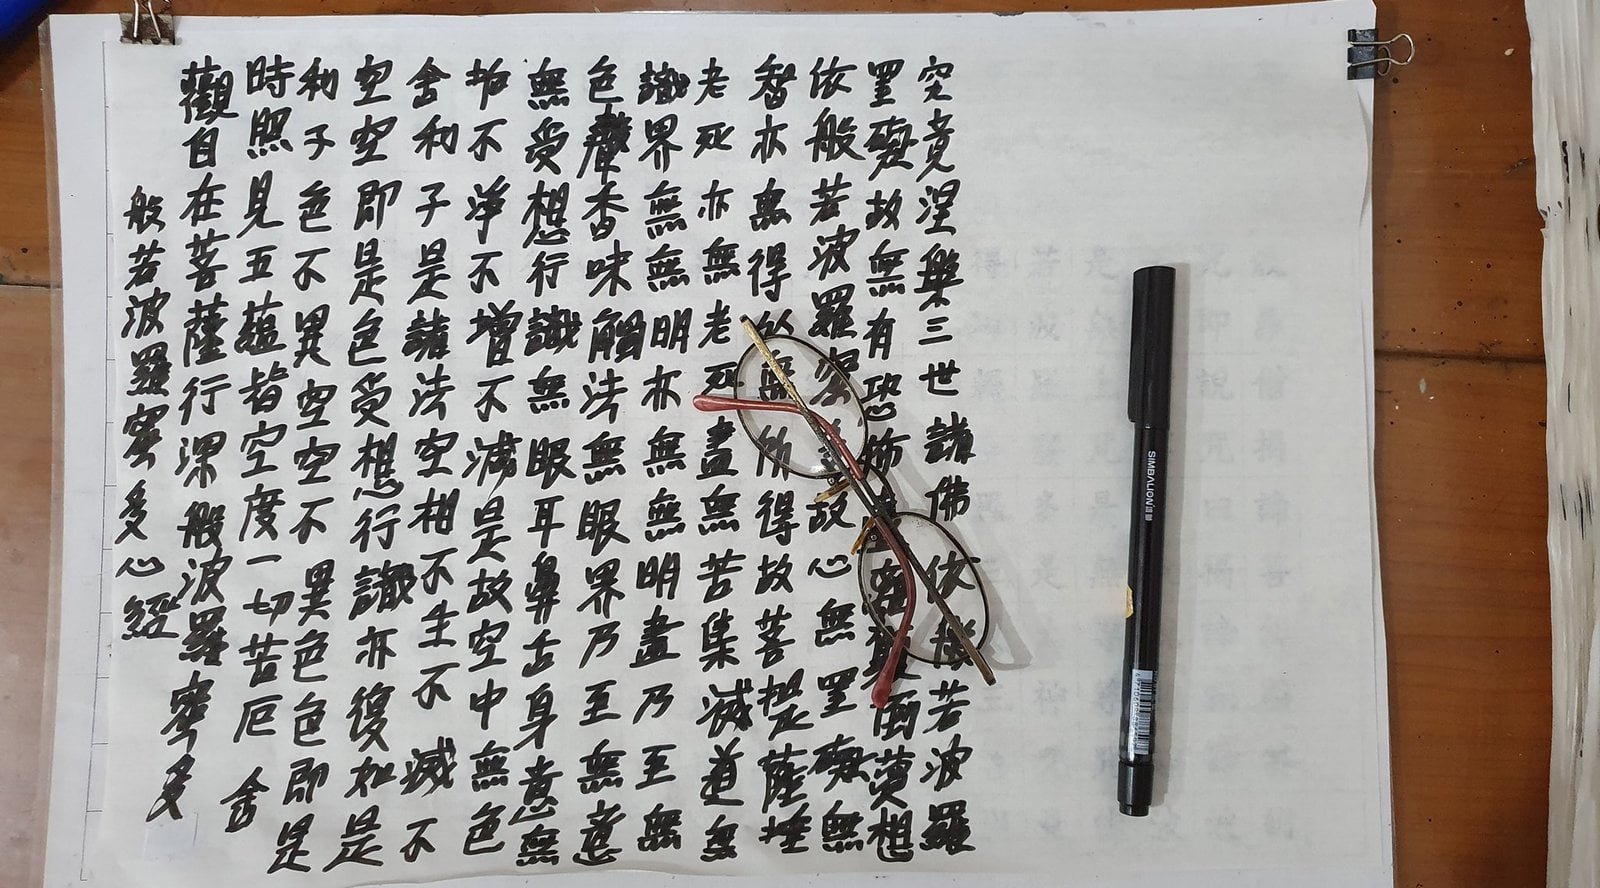 般若波羅密多心經
觀自在菩薩行深般波羅密多
時照見五蘊皆空度一切苦厄舍
利子色不異空空不異色色即是
空空即是色受想行識亦復如是
舍利子是諸法空相不生不滅不
垢不淨不增不減是故空中無色
無受想行識無眼耳鼻舌身意無
色聲香味觸法無眼界乃至無意
識界無無明亦無無明盡乃至無
老死亦無無老死盡無苦集滅道無
智亦無得以無所得故菩提薩埵
依般若波羅密多故心無罣礙無
罣礙故無有恐怖遠離顛倒夢想
究竟涅槃三世諸佛依般若波羅
SIMBALION